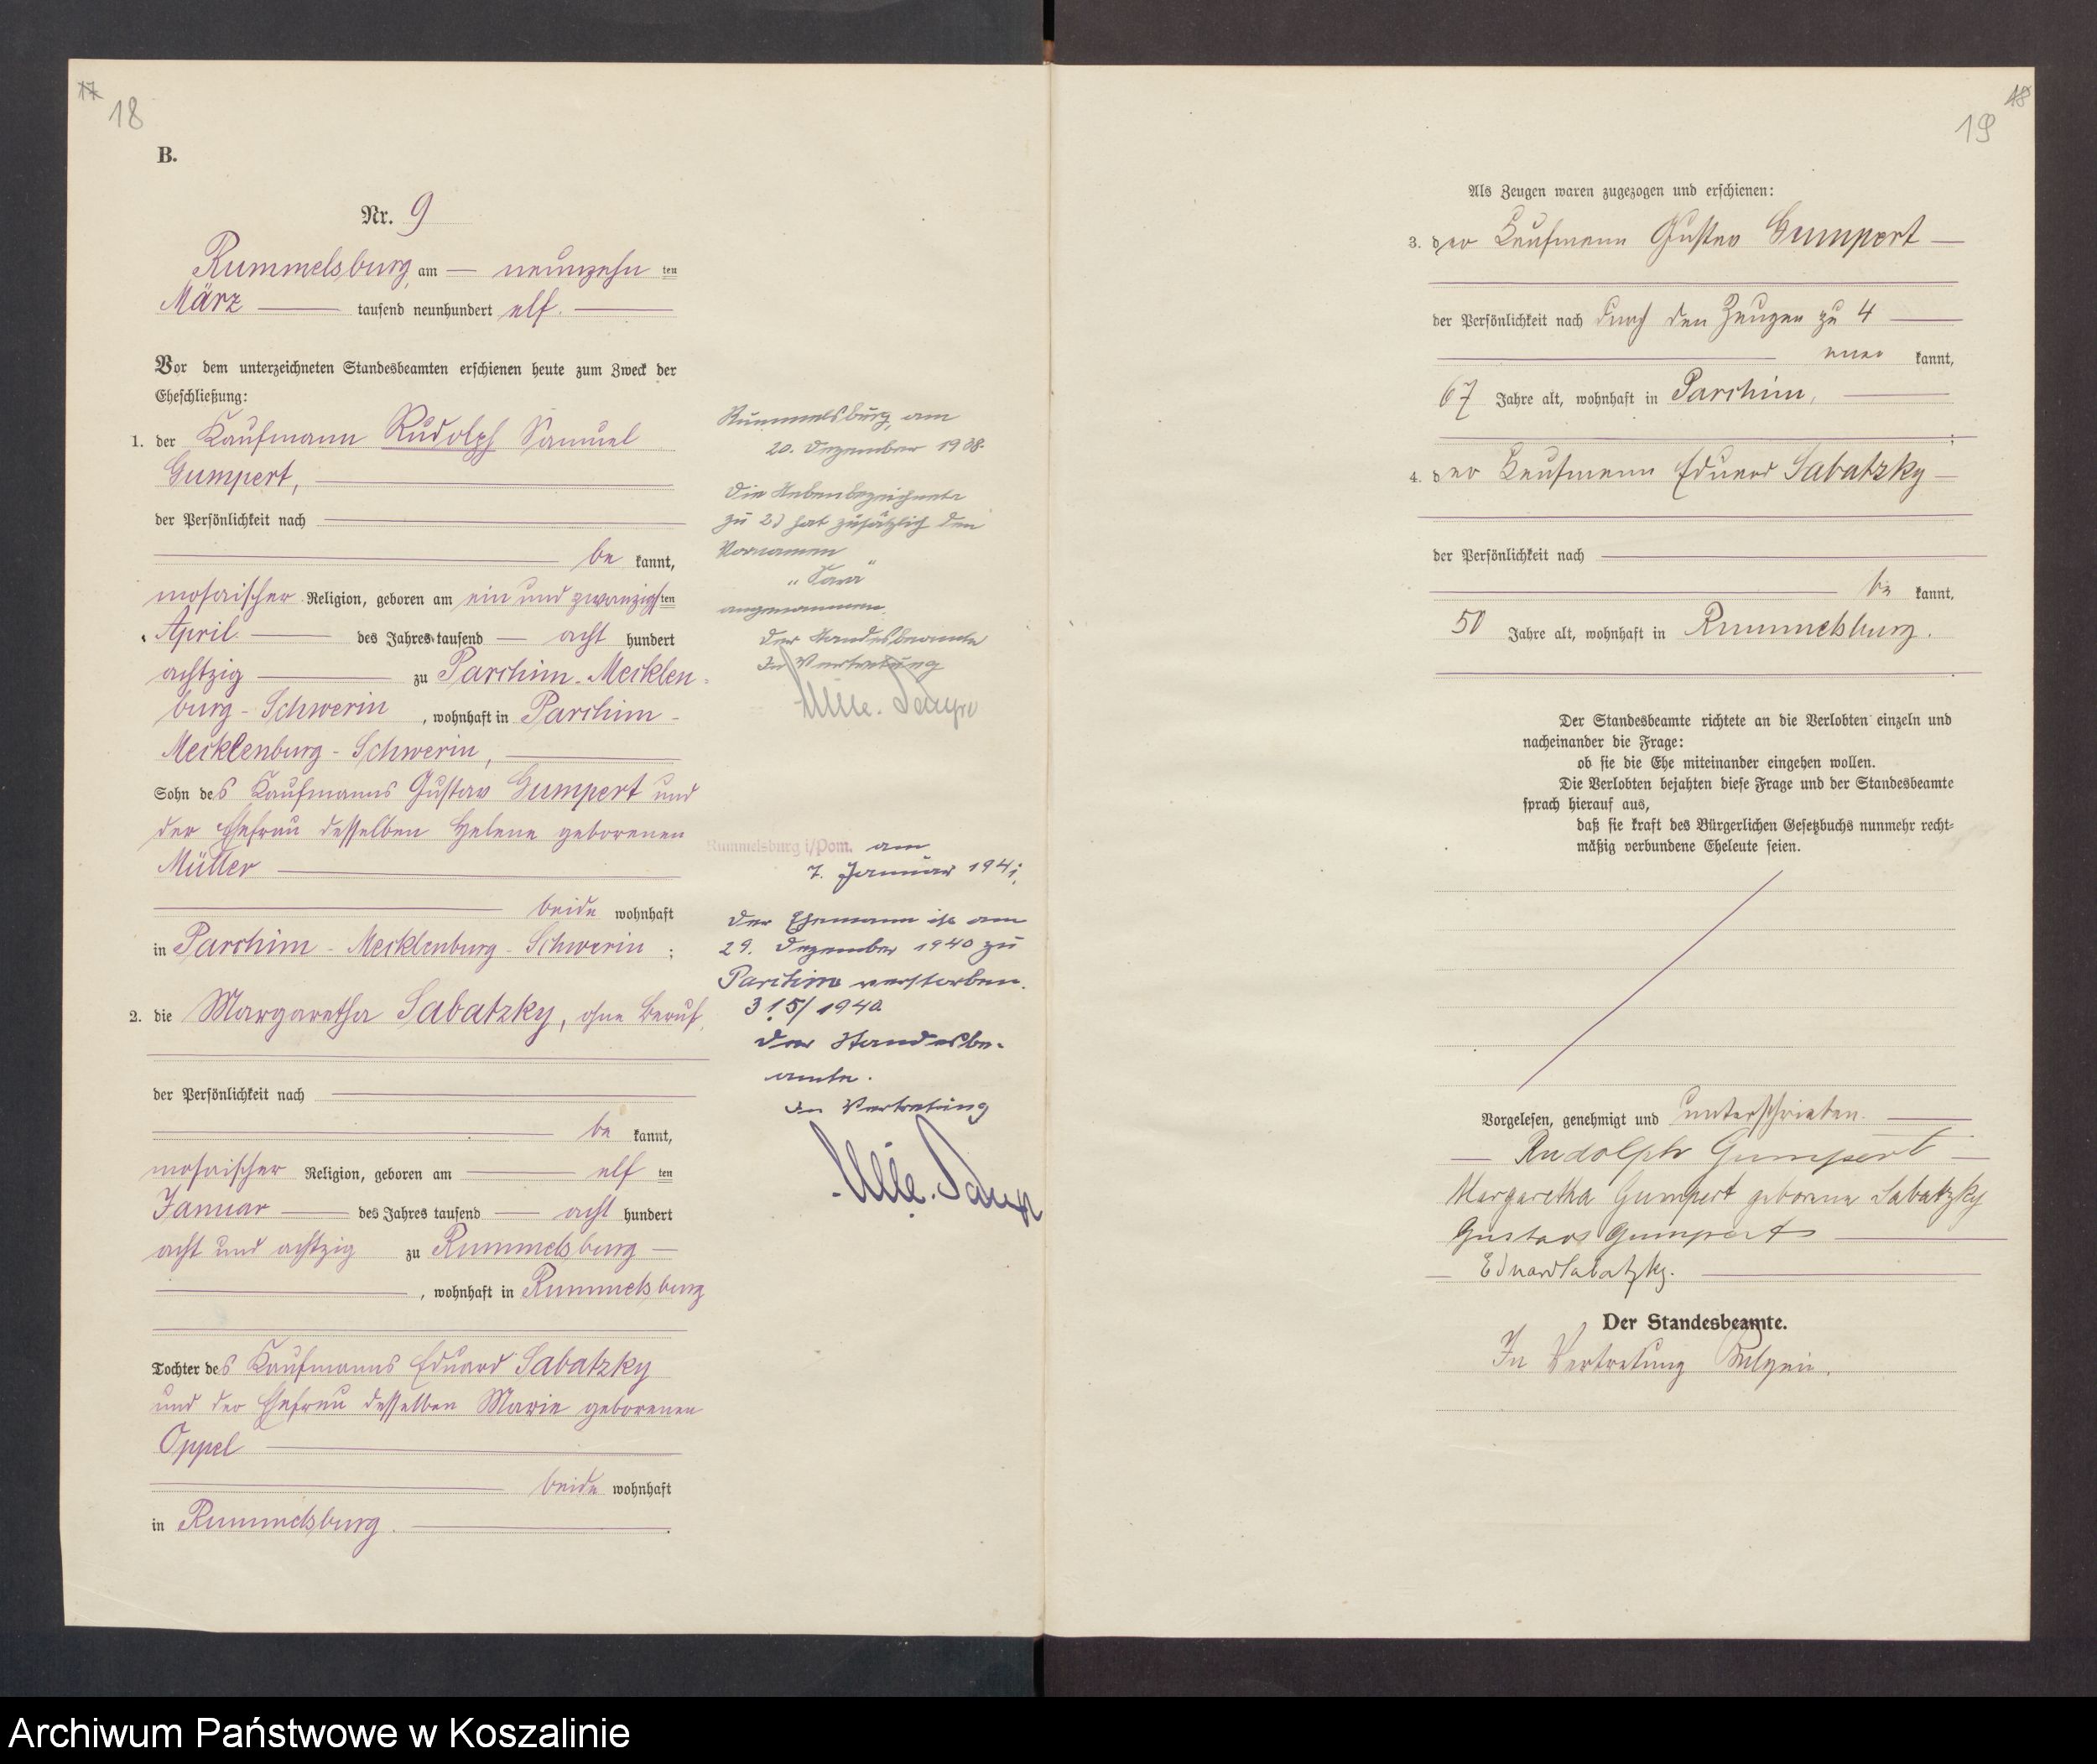 17
18
B.
Nr. 9
Rummelsburg, am — neunzehn ten
März — tausend neunhundert elf. —
Vor dem unterzeichneten Standesbeamten erschienen heute zum Zweck der
Eheschließung:
1. der Kaufmann Rudolph Samuel
Gumpert, —
der Persönlichkeit nach —
— be kannt,
mosaischer Religion, geboren am ein und zwanzigsten
April — des Jahres tausend — acht hundert
achtzig — zu Parchim-Mecklen-
burg-Schwerin, wohnhaft in Parchim-
Mecklenburg-Schwerin, —
Sohn des Kaufmanns Gustav Gumpert und
der Ehefrau desselben Helene geborenen
Müller —
— beide wohnhaft
in Parchim-Mecklenburg-Schwerin;
2. die Margaretha Sabatzky, ohne Beruf,
der Persönlichkeit nach —
— be kannt,
mosaischer Religion, geboren am — elf ten
Januar — des Jahres tausend — acht hundert
acht und achtzig zu Rummelsburg —
—, wohnhaft in Rummelsburg
Tochter des Kaufmanns Eduard Sabatzky
und der Ehefrau desselben Marie geborenen
Oppel —
— beide wohnhaft
in Rummelsburg. —
Rummelsburg, am
20. Dezember 1938.
Die Nebenbezeichnete
zu 2) hat zusätzlich den
Vornamen
„Sara“
angenommen.
Der Standesbeamte
In Vertretung
Rummelsburg i/Pom. am
7. Januar 1941.
Der Ehemann ist am
29. Dezember 1940 zu
Parchim verstorben.
315/1940
Der Standesbe-
amte.
In Vertretung
18
19
Als Zeugen waren zugezogen und erschienen:
3. der Kaufmann Gustav Gumpert —
der Persönlichkeit nach durch den Zeugen zu 4 —
— aner kannt,
67 Jahre alt, wohnhaft in Parchim, —
;
4. der Kaufmann Eduard Sabatzky —
der Persönlichkeit nach —
— be kannt,
50 Jahre alt, wohnhaft in Rummelsburg.
Der Standesbeamte richtete an die Verlobten einzeln und
nacheinander die Frage:
ob sie die Ehe miteinander eingehen wollen.
Die Verlobten bejahten diese Frage und der Standesbeamte
sprach hierauf aus,
daß sie kraft des Bürgerlichen Gesetzbuchs nunmehr recht-
mäßig verbundene Eheleute seien.
Vorgelesen, genehmigt und unterschrieben. —
— Rudolph Gumpert —
Margaretha Gumpert geborene Sabatzky
Gustav Gumpert —
— Eduard Sabatzky. —
Der Standesbeamte.
In Vertretung
Archiwum Państwowe w Koszalinie